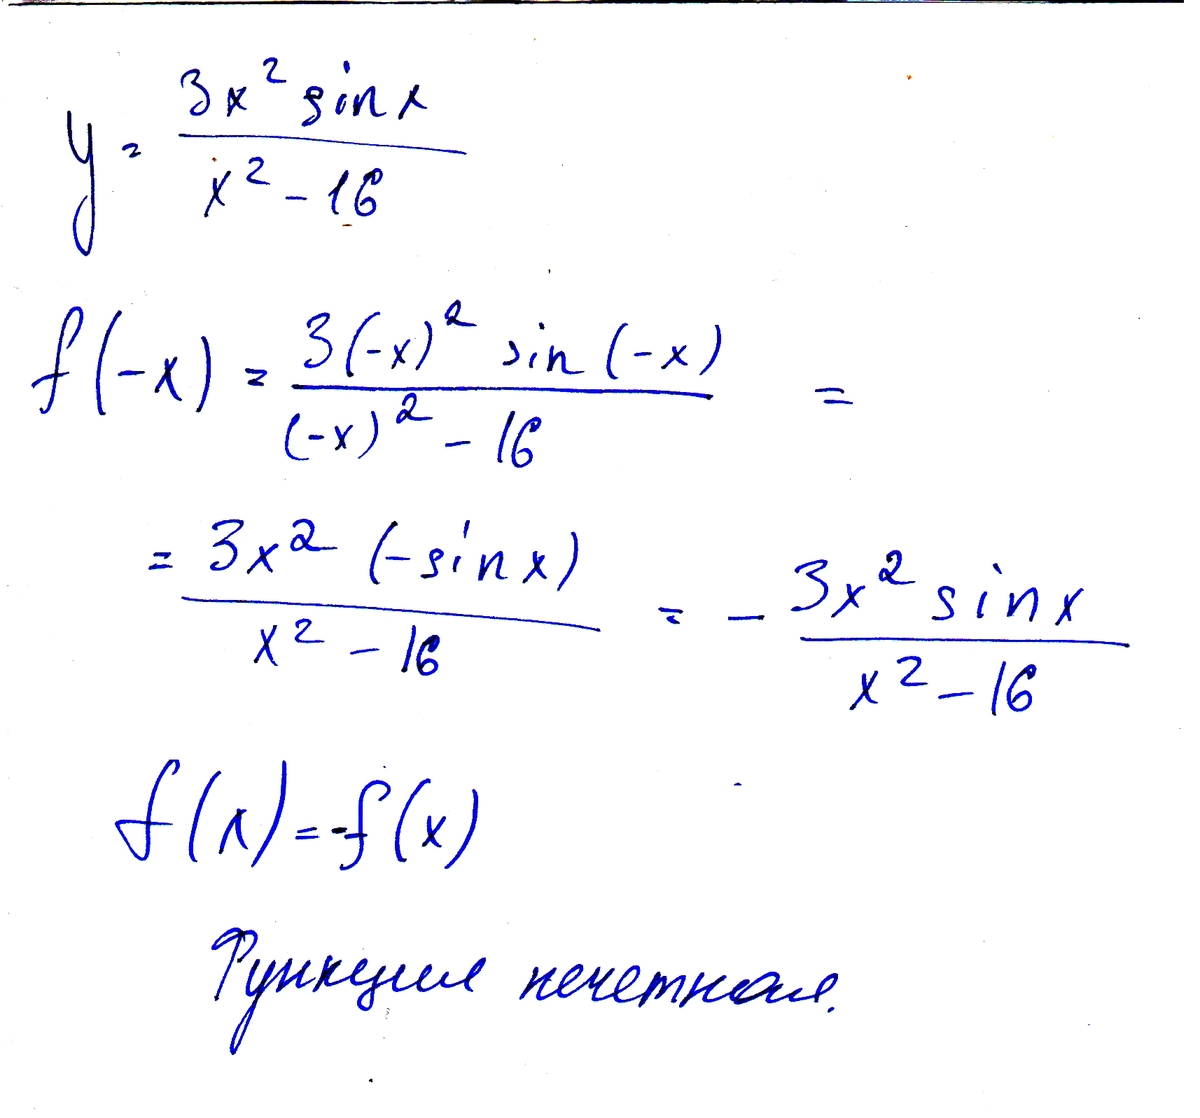 y = 3x² sin x / x² - 16
f(-x) = 3(-x)² sin(-x) / (-x)² - 16 =
= 3x² (-sin x) / x² - 16 = - 3x² sin x / x² - 16
f(x) = -f(x)
Функция нечетная.